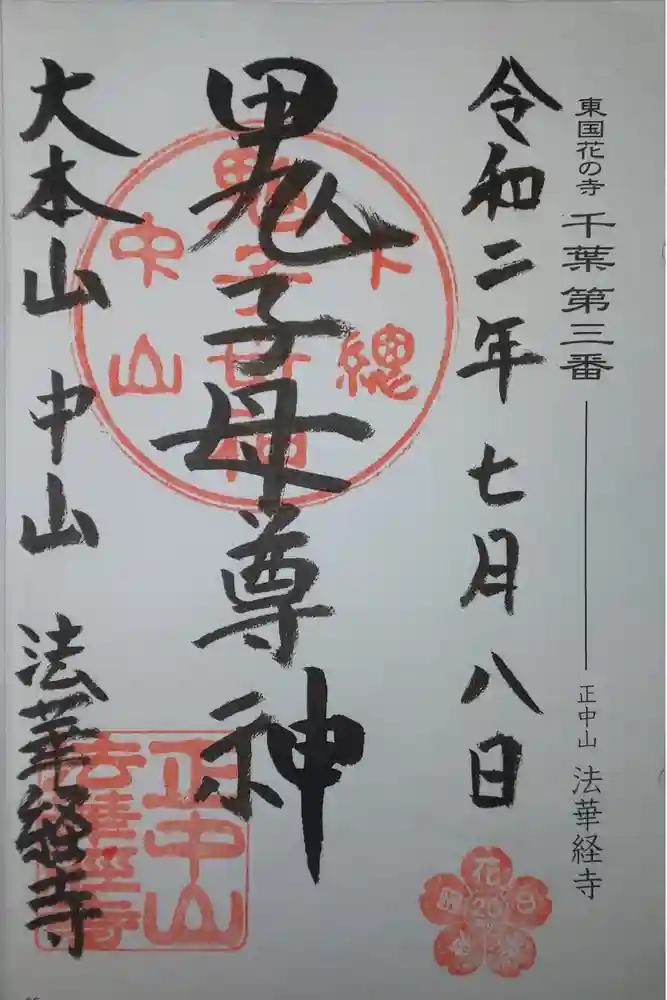 東国花の寺 千葉第三番 正中山 法華経寺
令和二年七月八日
鬼子母尊神
大本山 中山 法華経寺
下總
鬼子母神
中山
正中山
法華経寺
花
20